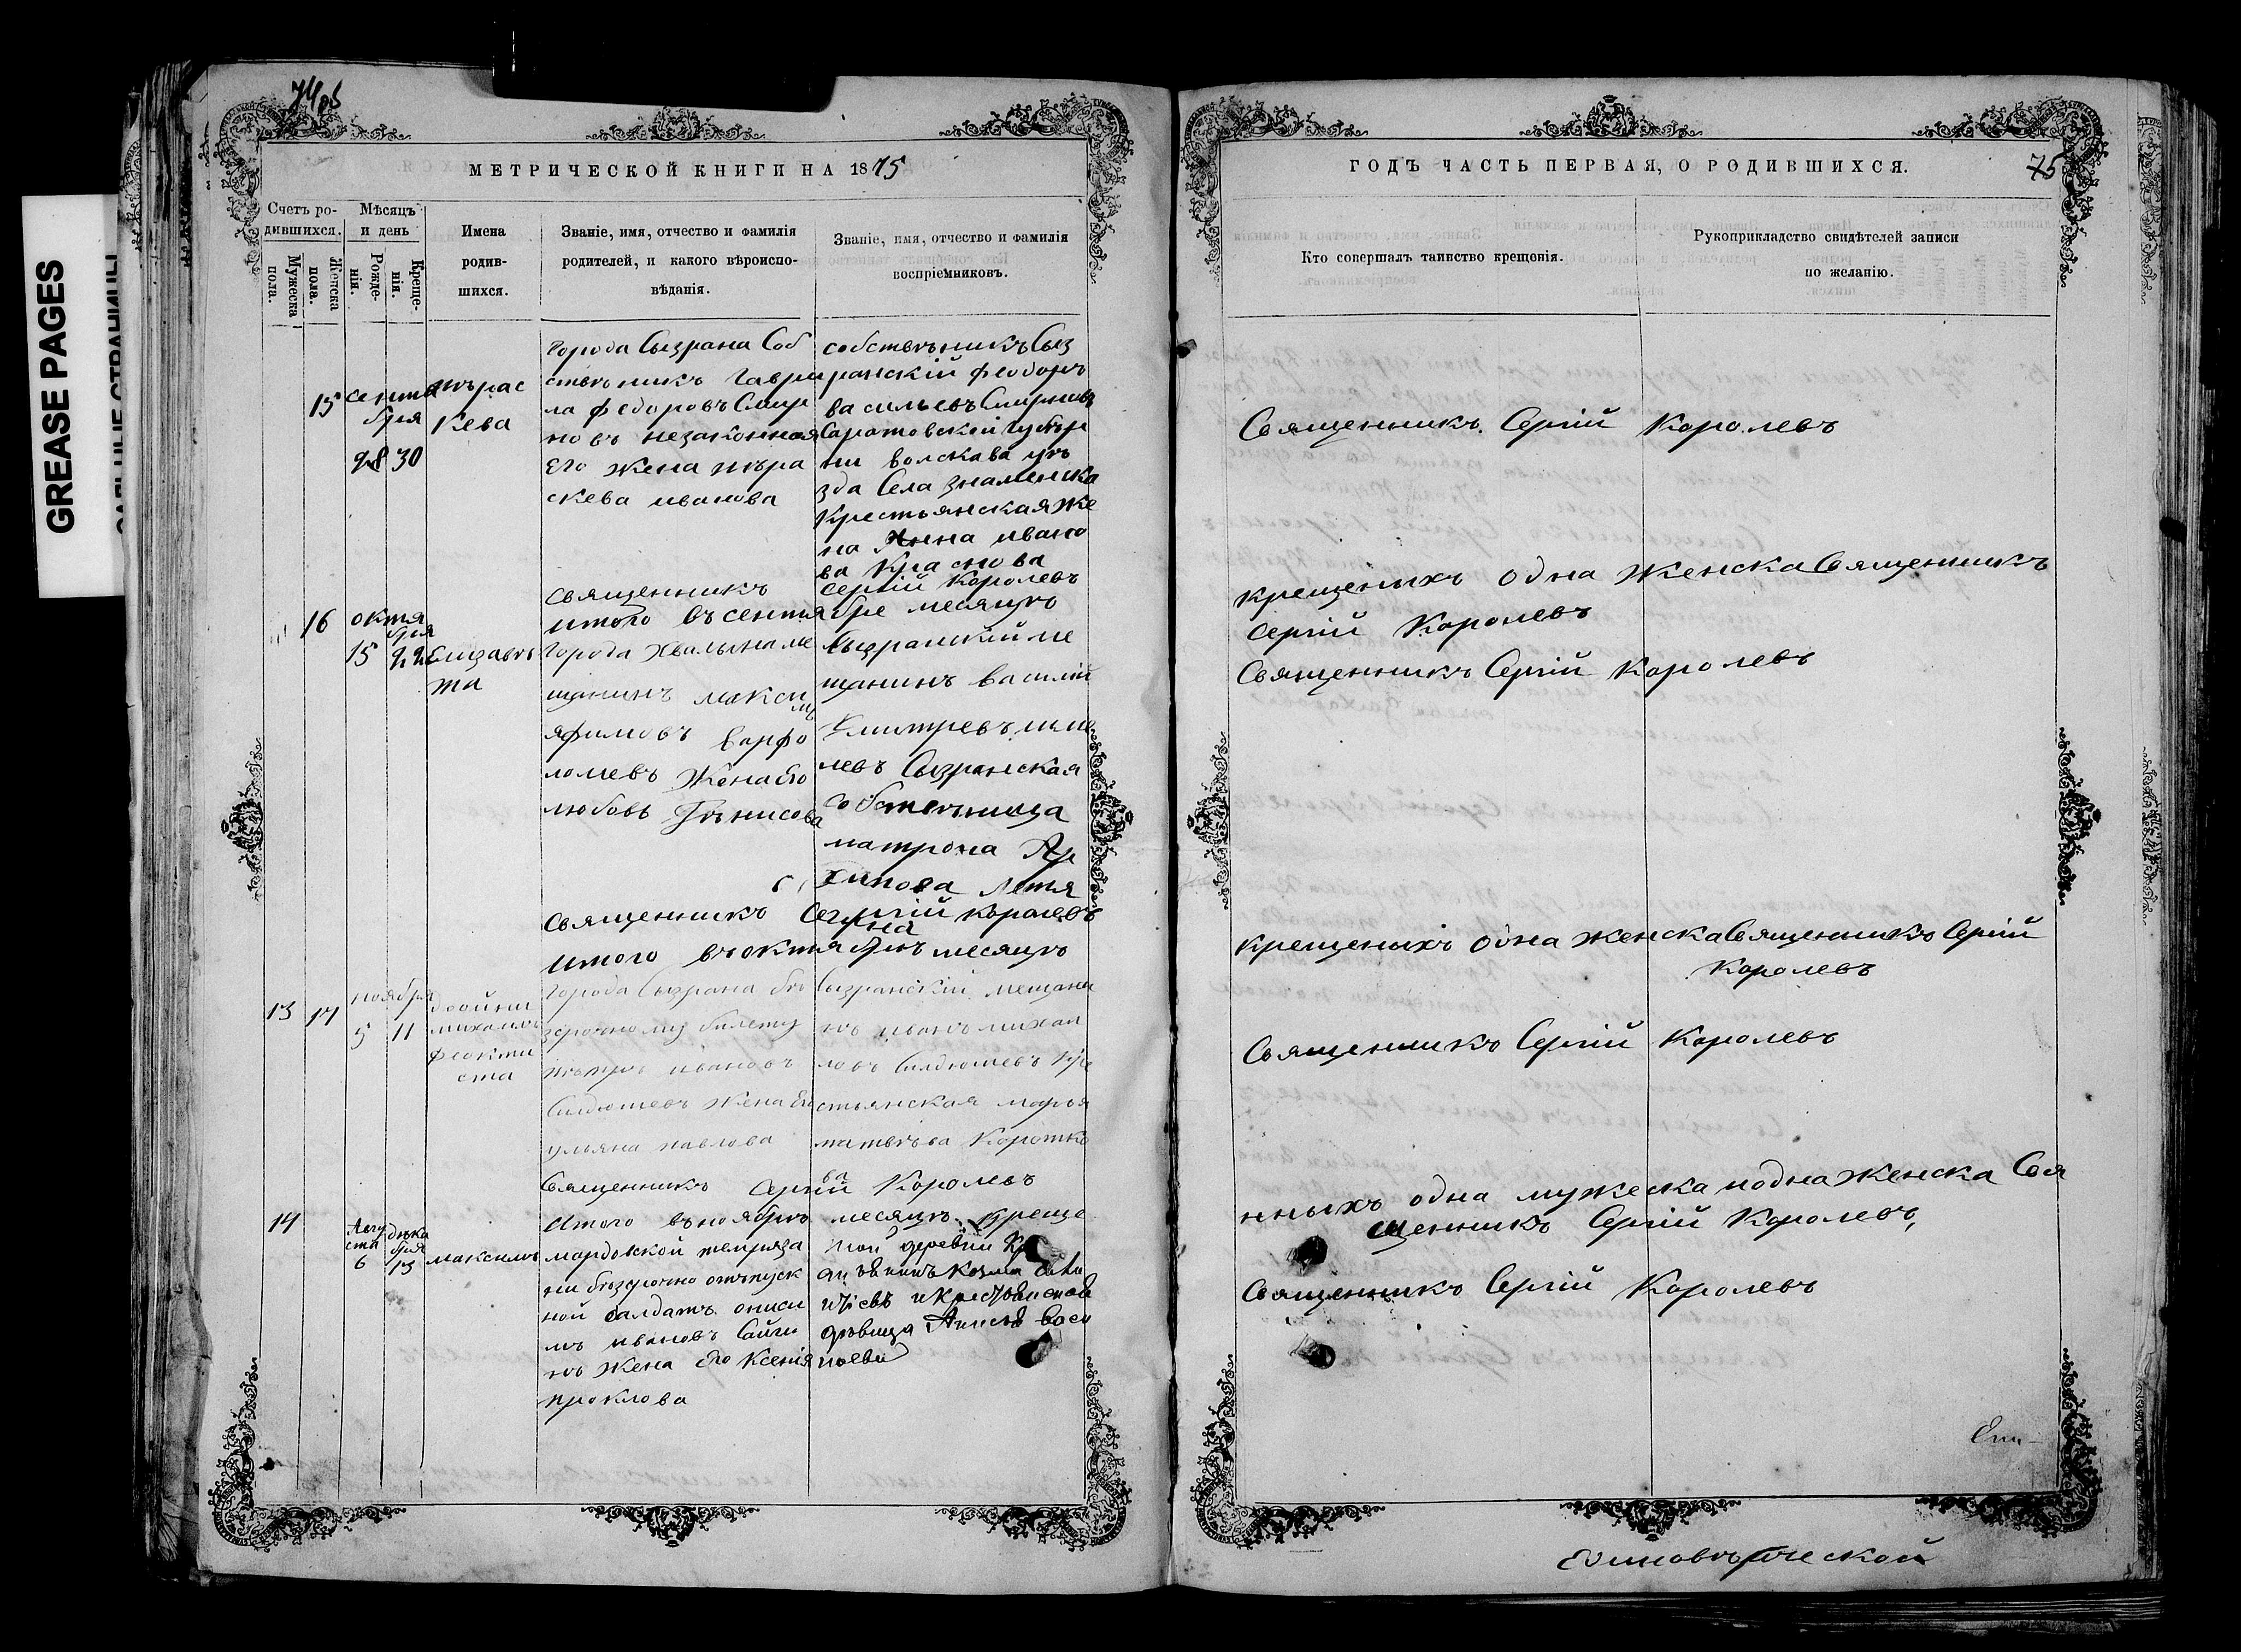 GREASE PAGES
74об
МЕТРИЧЕСКОЙ КНИГИ НА 1875
Счетъ ро-
дившихся.
Мужеска
пола.
Женска
пола.
Мѣсяцъ
и день
Рожде-
нія.
Креще-
нія.
Имена
родив-
шихся.
Званіе, имя, отчество и фамилія
родителей, и какого вѣроиспо-
вѣданія.
Званіе, имя, отчество и фамилія
воспріемниковъ.
15
сентя
бря
28 30
пѣрас
кева
города Сызрана Соб
ствѣникъ Гаври
ла федоровъ Смир
новъ незаконная
Его жена пѣра
скева иванова
собствѣникъ Сыз
ранский феодоръ
васильевъ Смирновъ
Саратовской губѣр
ни волскава уѣ
зда Села знаменска
Крестьянская же
на Анна ивано
ва Краснова
священникъ Сергій Королевъ
итого въ сентябре месяцѣ
16
октя
бря
15 22
Елизавѣ
та
города Хвалына ме
щанинъ макси
мъ
яфимовъ варфо
ломевъ Жена Его
любовь Дѣнисова
Сызранский ме
щанинъ василий
Дмитревъ
левъ Сызранская
собствѣница
матрона Ар
хипова Летя
гина
священникъ Сергій Королевъ
итого въ октябрѣ месяцѣ
13 17
ноября
5 11
двойни
михаилъ
феокти
ста
города Сызрана бѣ
зсрочному билету
пѣтръ ивановъ
Силдюшевъ Жена Его
ульяна павлова
Сызранскій мещани
нъ иванъ михаи
ловъ Силдюшевъ кре
стьянская марья
матвѣва Коротко
ва
Священникъ Сергій Королевъ
Итого въ ноябрѣ месяцѣ креще
14
Авгу
ста
6
дѣка
бря
13
максимъ
мардовской темряза
ни бѣзсрочно отъпуск
ной салдатъ ониси
мъ ивановъ Сайги
нъ жена Его Ксенія
проклова
той деревни Кр
козма
дѣвица васи
льева
ГОДЪ ЧАСТЬ ПЕРВАЯ, О РОДИВШИХСЯ.
75
Кто совершалъ таинство крещенія.
Рукоприкладство свидѣтелей записи
по желанію.
Священникъ Сергій Королевъ
крещеныхъ одна Женска Священникъ
Сергій Королевъ
Священникъ Сергій Королевъ
крещеныхъ одна женска Священникъ Сергій
Королевъ
Священникъ Сергій Королевъ
нныхъ одна мужеска иодна Женска Свя
щенникъ Сергій Королевъ
Священникъ Сергій Королевъ
Еди-
Единовѣрческой